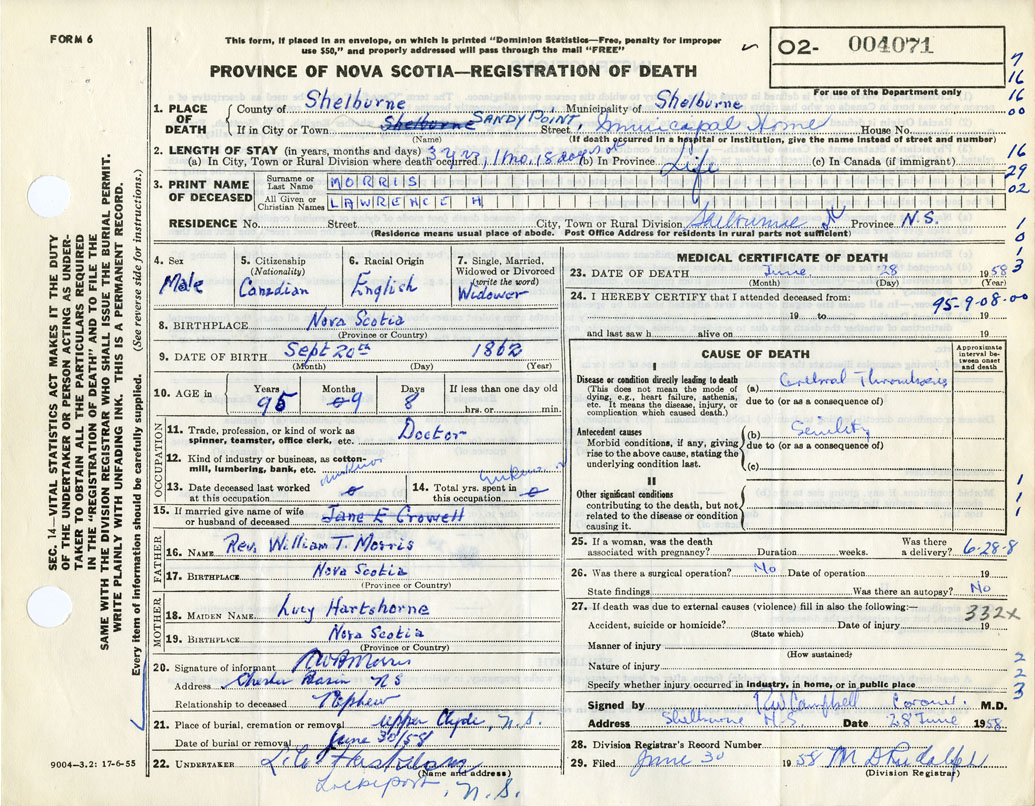 FORM 6
This form, if placed in an envelope, on which is printed "Dominion Statistics—Free, penalty for improper
use $50," and properly addressed will pass through the mail "FREE"
PROVINCE OF NOVA SCOTIA—REGISTRATION OF DEATH
O2- 004071
For use of the Department only
1. PLACE OF DEATH
County of Shelburne Municipality of Shelburne
If in City or Town Shelburne SANDY POINT, Street Municipal Home House No.
(Name) (If death occurred in a hospital or institution, give the name instead of street and number)
2. LENGTH OF STAY (in years, months and days)
(a) In City, Town or Rural Division where death occurred, 1 mo. 18 days (b) In Province Life (c) In Canada (if immigrant)
3. PRINT NAME OF DECEASED
Surname or Last Name MORRIS
All Given or Christian Names LAWRENCE H
RESIDENCE No. Street City, Town or Rural Division Shelburne Province N.S.
(Residence means usual place of abode. Post Office Address for residents in rural parts not sufficient)
SEC. 14—VITAL STATISTICS ACT MAKES IT THE DUTY
OF THE UNDERTAKER OR PERSON ACTING AS UNDER-
TAKER TO OBTAIN ALL THE PARTICULARS REQUIRED
IN THE "REGISTRATION OF DEATH" AND TO FILE THE
SAME WITH THE DIVISION REGISTRAR WHO SHALL ISSUE THE BURIAL PERMIT.
WRITE PLAINLY WITH UNFADING INK. THIS IS A PERMANENT RECORD.
Every item of information should be carefully supplied. (See reverse side for instructions.)
4. Sex Male
5. Citizenship (Nationality) Canadian
6. Racial Origin English
7. Single, Married, Widowed or Divorced (write the word) Widower
8. BIRTHPLACE Nova Scotia
(Province or Country)
9. DATE OF BIRTH Sept 20th 1862
(Month) (Day) (Year)
10. AGE in Years 95 Months 9 Days 8 If less than one day old
hrs. or min.
OCCUPATION
11. Trade, profession, or kind of work as
spinner, teamster, office clerk, etc. Doctor
12. Kind of industry or business, as cotton-
mill, lumbering, bank, etc.
13. Date deceased last worked
at this occupation
14. Total yrs. spent in
this occupation
15. If married give name of wife
or husband of deceased Jane E Crowell
FATHER
16. NAME Rev. William T. Morris
17. BIRTHPLACE Nova Scotia
(Province or Country)
MOTHER
18. MAIDEN NAME Lucy Hartshorne
19. BIRTHPLACE Nova Scotia
(Province or Country)
20. Signature of informant
Address Chester Basin NS
Relationship to deceased Nephew
21. Place of burial, cremation or removal Upper Clyde, N.S.
Date of burial or removal June 30/58
22. UNDERTAKER
(Name and address)
Lockeport, N.S.
9004—3.2: 17-6-55
MEDICAL CERTIFICATE OF DEATH
23. DATE OF DEATH June 28 1958
(Month) (Day) (Year)
24. I HEREBY CERTIFY that I attended deceased from:
95-9-08-00
19 to 19
and last saw h alive on 19
CAUSE OF DEATH
Approximate interval between onset and death
I
Disease or condition directly leading to death
(This does not mean the mode of
dying, e.g., heart failure, asthenia,
etc. It means the disease, injury, or
complication which caused death.)
(a) Cerebral Thrombosis
due to (or as a consequence of)
Antecedent causes
Morbid conditions, if any, giving
rise to the above cause, stating the
underlying condition last.
(b) Senility
due to (or as a consequence of)
(c)
II
Other significant conditions
contributing to the death, but not
related to the disease or condition
causing it.
25. If a woman, was the death
associated with pregnancy? Duration weeks. Was there
a delivery? 6-28-8
26. Was there a surgical operation? No Date of operation 19
State findings Was there an autopsy? No
27. If death was due to external causes (violence) fill in also the following:—
332x
Accident, suicide or homicide? Date of injury 19
(State which)
Manner of injury
(How sustained)
Nature of injury
Specify whether injury occurred in industry, in home, or in public place
Signed by Campbell Coroner M.D.
Address Shelburne N.S Date 28 June 1958
28. Division Registrar's Record Number
29. Filed June 30 1958
(Division Registrar)
7
16
16
00
16
29
02
1
0
1
3
1
1
1
2
2
3